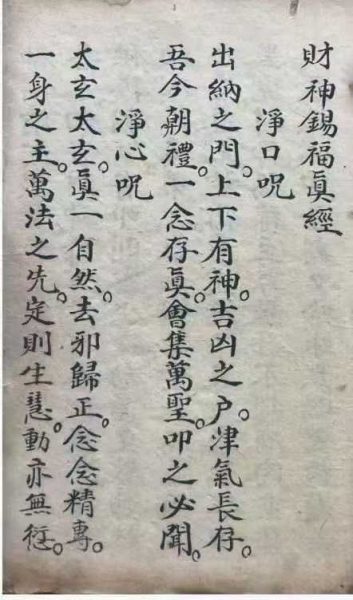 財神錫福真經
淨口呪
出納之門。上下有神。吉凶之户。津氣長存。
吾今朝禮。一念存眞。會集萬聖。叩之必聞。
淨心呪
太玄太玄。眞一自然。去邪歸正。念念精專。
一身之主。萬法之先。定則生慧。動亦無愆。